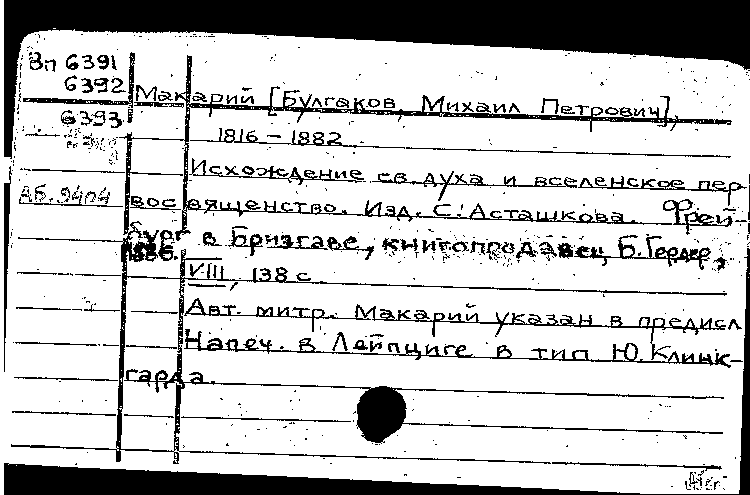 Вп 6391
6392
Макарий [Булгаков, Михаил Петрович],
6393
1816 – 1882
Исхождение св. духа и вселенское пер
Аб. 9404
восвященство. Изд. С. Асташкова. Фрей-
бург в Бризгаве, книгопродавец Б. Гердер,
1886.
VIII, 138 с.
Авт. митр. Макарий указан в предисл
Напеч. в Лейпциге в тип Ю. Клинк-
гарда.